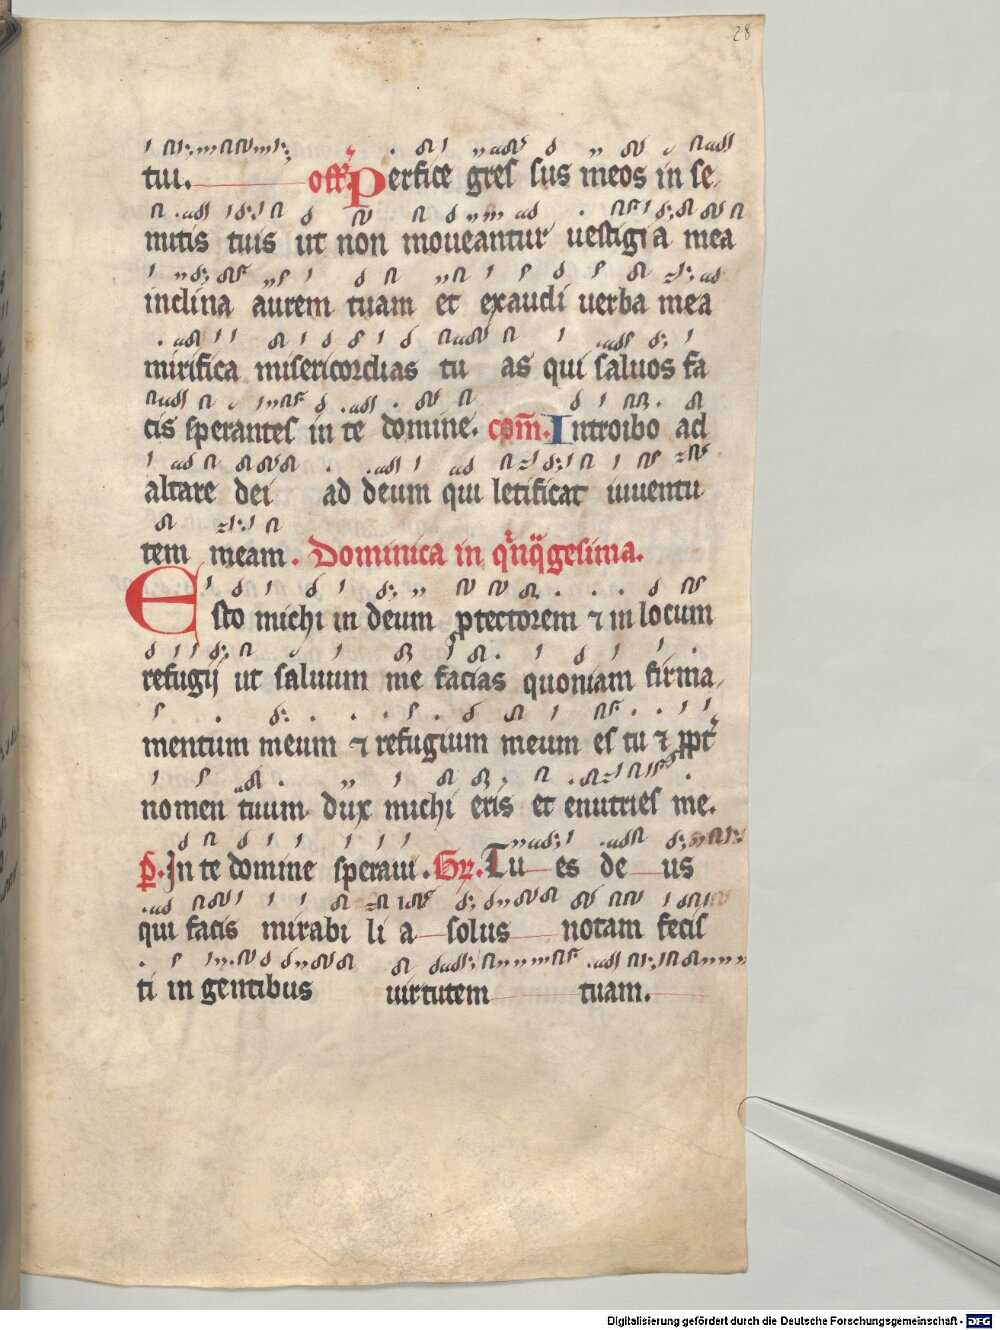 28
tui. off. Perfice gres sus meos in se
mitis tuis ut non moueantur uestigi a mea
inclina aurem tuam et exaudi uerba mea
mirifica misericordias tu as qui saluos fa
cis sperantes in te domine. com̄. Introibo ad
altare dei ad deum qui letificat iuuentu
tem meam. Dominica in qͥnqͣgesima.
Esto michi in deum ꝓtectorem ⁊ in locum
refugij ut saluum me facias quoniam firma
mentum meum ⁊ refugium meum es tu ⁊ ꝓpt͛
nomen tuum dux michi eris et enutries me.
p̄. In te domine speraui. Gꝝ. Tu es de us
qui facis mirabi li a solus notam fecis
ti in gentibus uirtutem tuam.
Digitalisierung gefördert durch die Deutsche Forschungsgemeinschaft - DFG